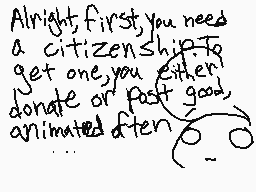 Alright, first, you need
a citizenship. To
get one, you either
donate or post good,
animated often
...